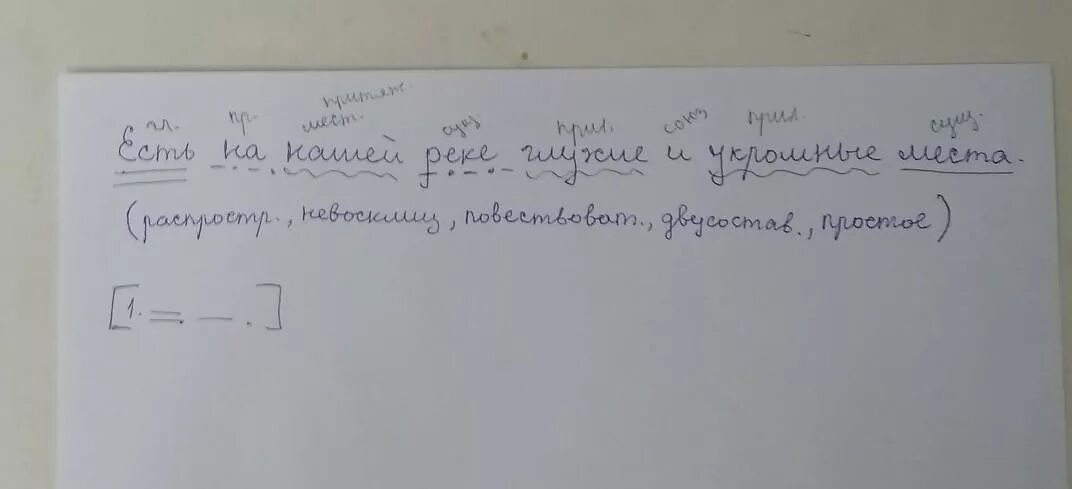 притяж.
гл. пр. мест. сущ. прил. союз прил. сущ.
Есть на нашей реке глухие и укромные места.
(распростр., невосклиц, повествоват., двусостав., простое)
[1. = . — . ]